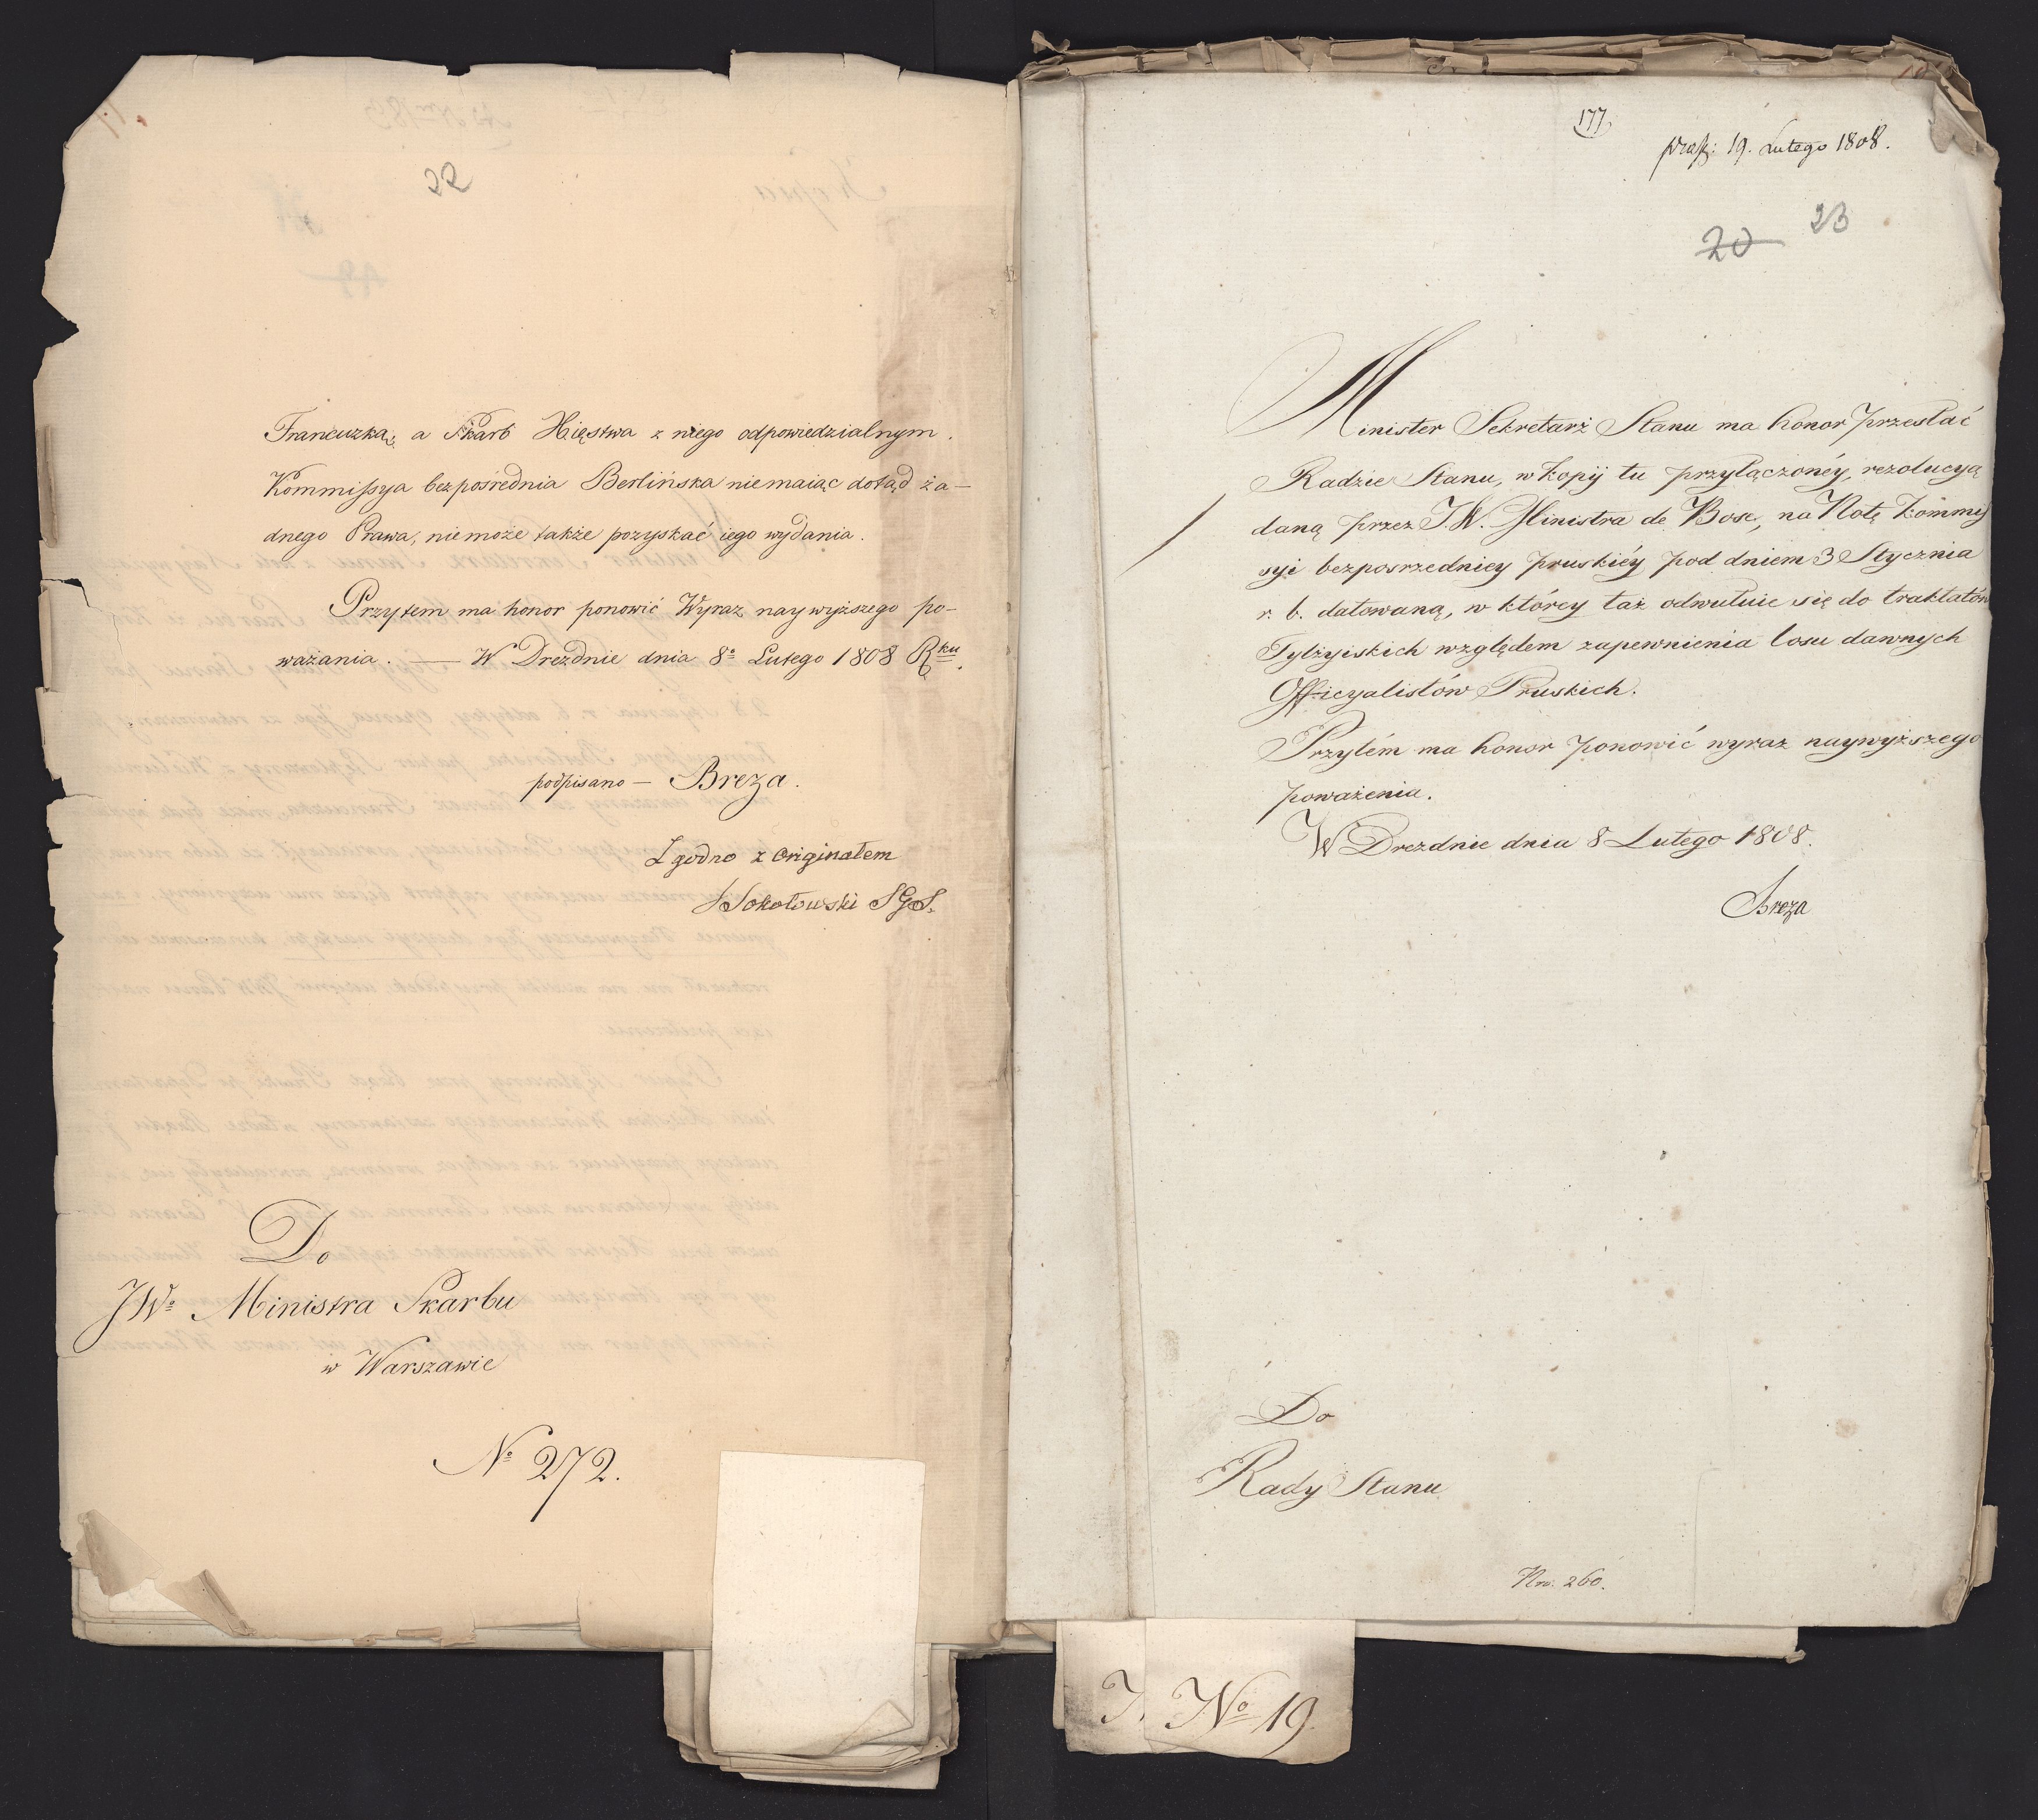 22
Francuzką, a Skarb Xięstwa z niego odpowiedzialnym.
Kommissya bezpośrednia Berlińska niemaiąc dotąd ża-
dnego Prawa, niemoże także pozyskać iego wydania.
Przytem ma honor ponowić Wyraz naywyższego po-
ważania. — W Dreżdnie dnia 8º Lutego 1808 Rku.
podpisano — Breza.
Zgodno z Originałem
Sokołowski SGS.
Do
JWº Ministra Skarbu
w Warszawie
Nº 272.
177
praes: 19. Lutego 1808.
20 23
Minister Sekretarz Stanu ma honor przesłać
Radzie Stanu, w kopij tu przyłączonéy, rezolucyą
daną przez J.W. Ministra de Bose, na Notę Kommis
syi bezposrzedniey pruskiéy pod dniem 3 Stycznia
r. b. datowaną, w którey taż odwułuie się do traktatów
Tylżyiskich względem zapewnienia losu dawnych
Officyalistów Pruskich.
Przytém ma honor ponowić wyraz naywyższego
poważenia.
W Dreżdnie dnia 8 Lutego 1808.
Breza
Do
Rady Stanu
Nro: 260.
J. Nº 19.